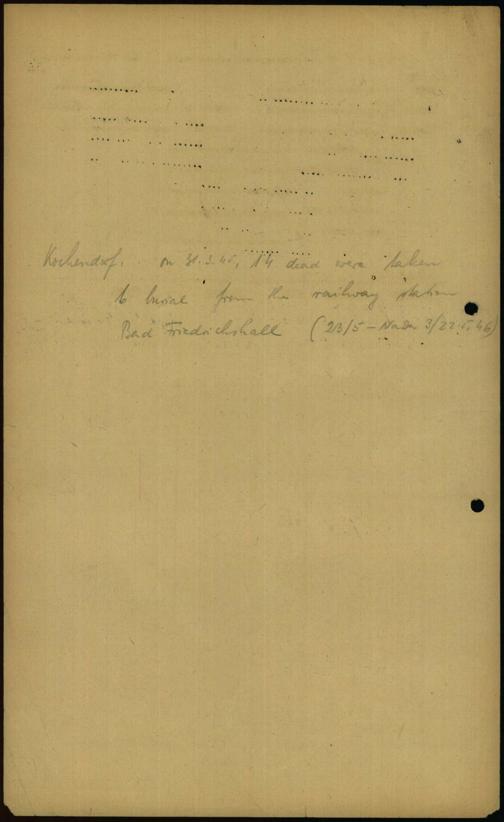 Kochendorf. on 31.3.45, 14 dead were taken
to burial from the railway station
Bad Friedrichshall (2B/5 – 3/22.5.46)